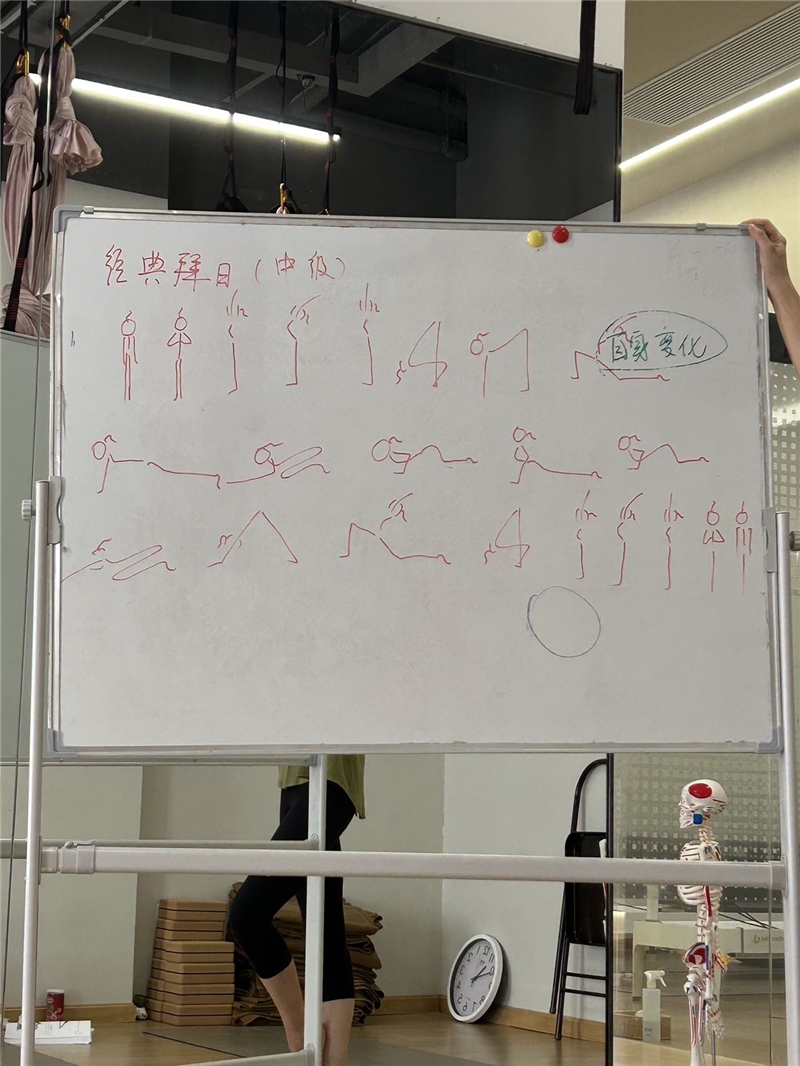 经典拜日（中级）
自身变化